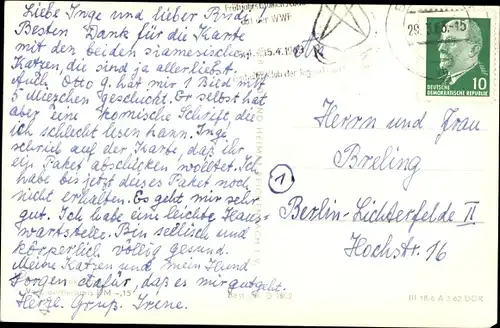 Liebe Inge und lieber Rudi
Besten Dank für die Karte
mit den beiden siamesischen
Katzen, die sind ja allerliebst.
Auch Otto g. hat mir 1 Bild mit
5 Miezchen geschickt. Er selbst hat
aber eine komische Schrift, die
ich schlecht lesen kann. Inge
schrieb auf der Karte, daß ihr
ein Paket abschicken wolltet. Ich
habe bis jetzt dieses Paket noch
nicht erhalten. Es geht mir sehr
gut. Ich habe eine leichte Haus-
wartstelle. Bin seelisch und
körperlich völlig gesund.
Meine Katzen und mein Hund
sorgen dafür, daß es mir gut geht.
Herzl. Gruß. Irene.
DEUTSCHE
DEMOKRATISCHE REPUBLIK
10
Herrn und Frau
Breling
1
Berlin-Lichterfelde II
Hochstr. 16
III 18 6 A 3 62 DDR